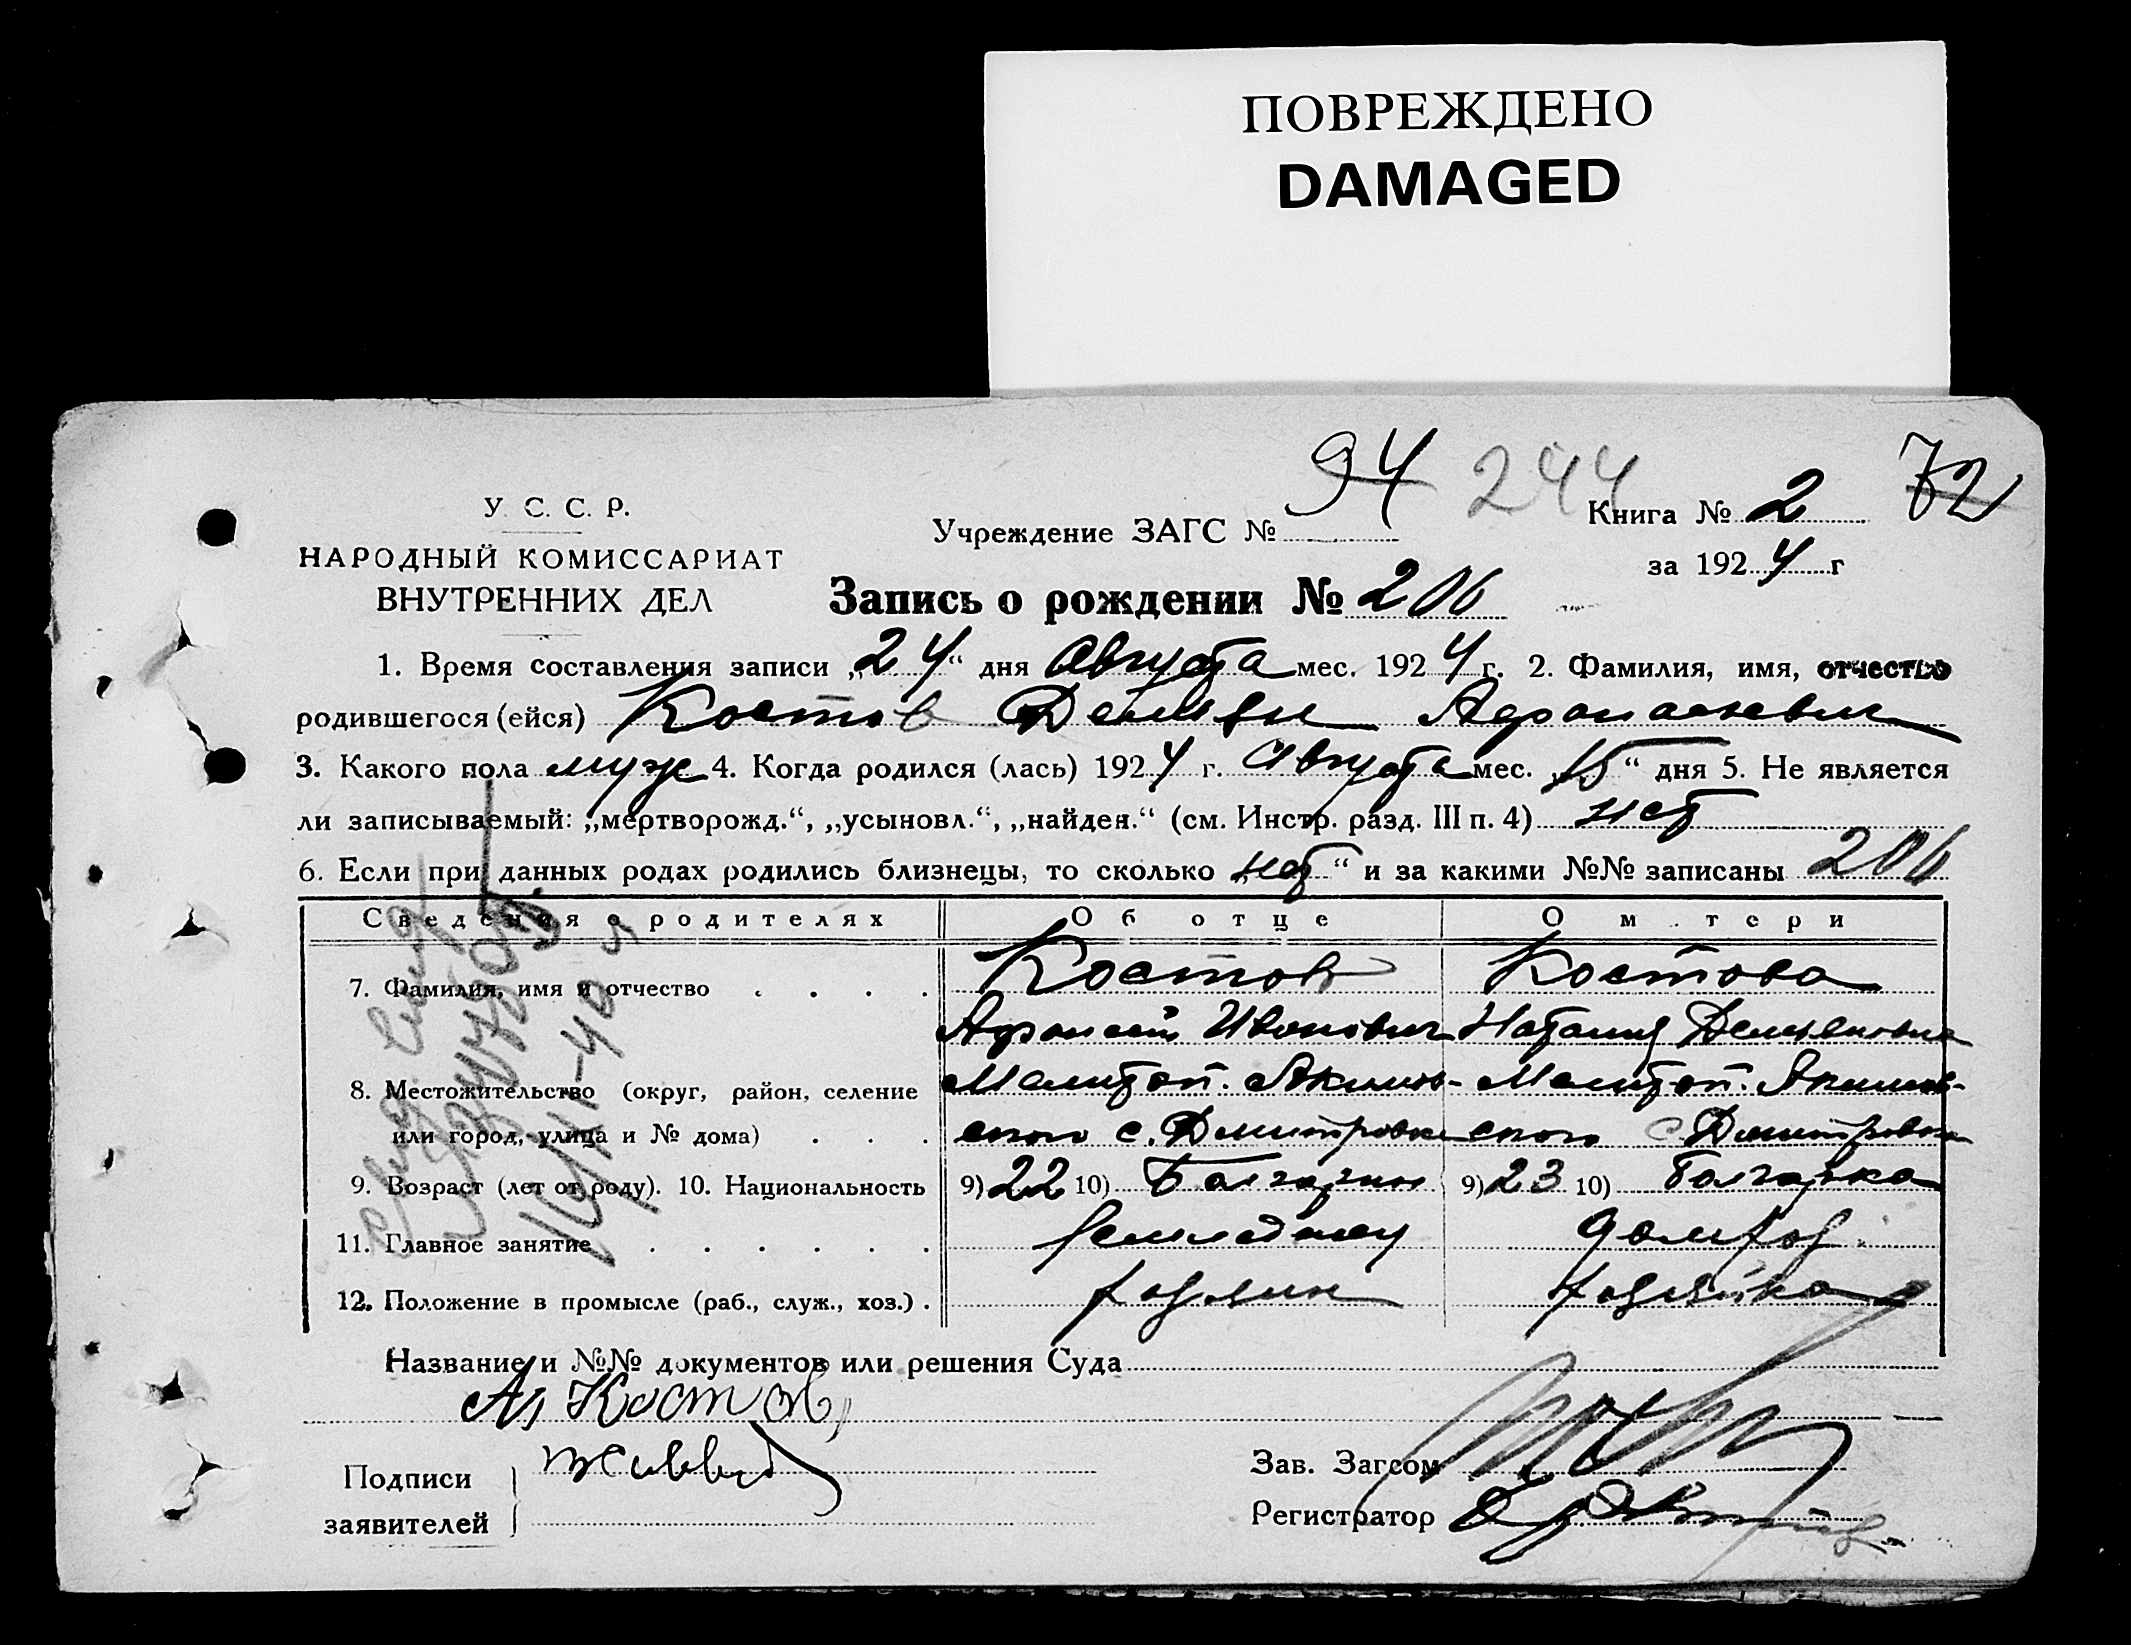 ПОВРЕЖДЕНО
DAMAGED
94 244 72
У. С. С. Р.
НАРОДНЫЙ КОМИССАРИАТ
ВНУТРЕННИХ ДЕЛ
Учреждение ЗАГС №
Книга № 2
за 1924 г
Запись о рождении № 206
1. Время составления записи „24“ дня Августа мес. 1924 г. 2. Фамилия, имя, отчество
родившегося (ейся) Костов Демьян Афанасиевич
3. Какого пола муж 4. Когда родился (лась) 1924 г. Августа мес. „15“ дня 5. Не является
ли записываемый: „мертворожд.“, „усыновл.“, „найден.“ (см. Инстр. разд. III п. 4) нет
6. Если при данных родах родились близнецы, то сколько „нет“ и за какими №№ записаны 206
Сведения о родителях Об отце О м тери
7. Фамилия, имя и отчество . . . . Костов Костова
Афанасий Иванович Наталия Демьяновна
8. Местожительство (округ, район, селение Мелитоп. Акимов- Мелитоп. Акимов-
или город, улица и № дома) . . . ского с. Дмитровки ского с. Дмитровки
9. Возраст (лет от роду). 10. Национальность 9) 22 10) Болгарин 9) 23 10) Болгарка
11. Главное занятие . . . . . . Земледелец домхоз.
12. Положение в промысле (раб., служ., хоз.) . хозяин хозяйка
Название и №№ документов или решения Суда
Аф Костов
Подписи
заявителей
Зав. Загсом
Регистратор